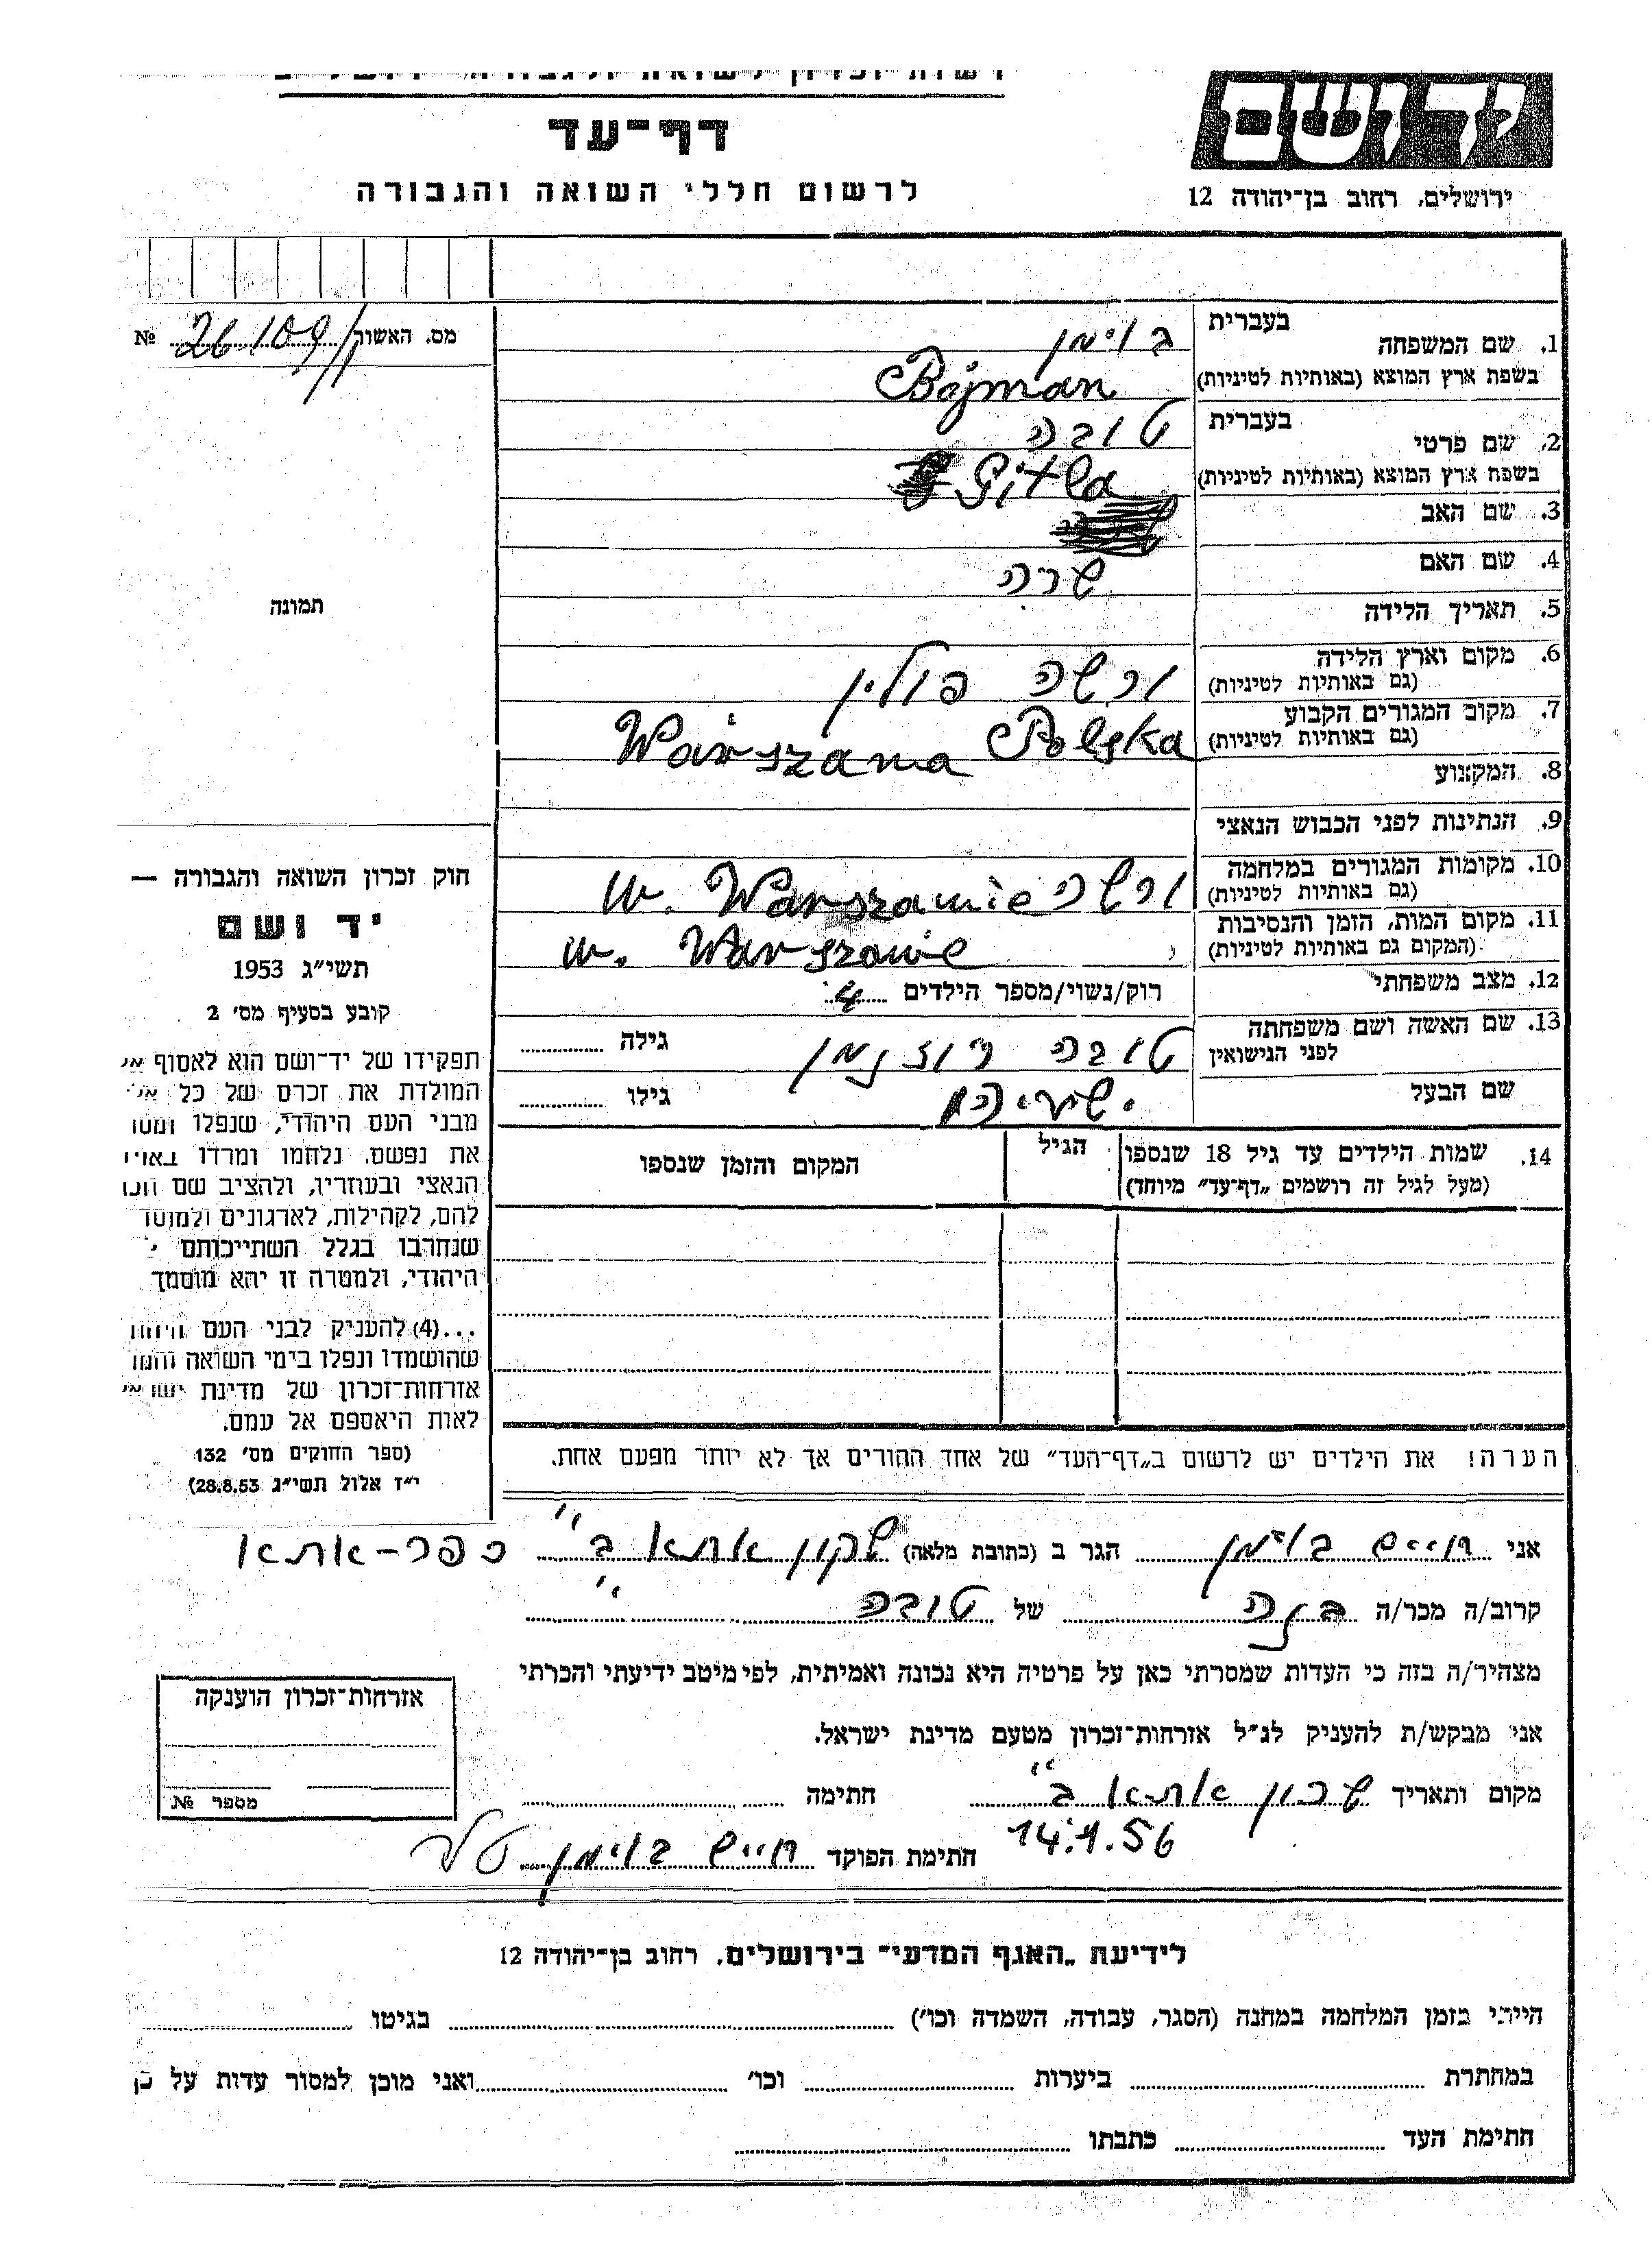 יד ושם
ירושלים, רחוב בן־יהודה 12
דף־עד
לרשום חללי השואה והגבורה
מס. האשור № 26.109/
תמונה
1. שם המשפחה בעברית בוימן
בשפת ארץ המוצא (באותיות לטיניות) Bojman
2. שם פרטי בעברית טובה
בשפת ארץ המוצא (באותיות לטיניות) Gitla
3. שם האב
4. שם האם שרה
5. תאריך הלידה
6. מקום וארץ הלידה ורשה פולין
(גם באותיות לטיניות)
7. מקום המגורים הקבוע Warszawa Polska
(גם באותיות לטיניות)
8. המקצוע
9. הנתינות לפני הכבוש הנאצי
10. מקומות המגורים במלחמה ורשה w. Warszawie
(גם באותיות לטיניות)
11. מקום המות, הזמן והנסיבות w. Warszawie
(המקום גם באותיות לטיניות)
12. מצב משפחתי רוק/נשוי/מספר הילדים 4
13. שם האשה ושם משפחתה טובה רוזנמן גילה
לפני הנישואין
שם הבעל גילו
14. שמות הילדים עד גיל 18 שנספו הגיל המקום והזמן שנספו
(מעל לגיל זה רושמים „דף־עד" מיוחד)
הערה! את הילדים יש לרשום ב„דף־העד" של אחד ההורים אך לא יותר מפעם אחת.
חוק זכרון השואה והגבורה —
יד ושם
תשי״ג 1953
קובע בסעיף מס׳ 2
תפקידו של יד־ושם הוא לאסוף
המולדת את זכרם של כל
מבני העם היהודי, שנפלו
את נפשם, נלחמו ומרדו
הנאצי ובעוזריו, ולהציב שם
להם, לקהילות, לארגונים
שנחרבו בגלל השתייכותם
היהודי, ולמטרה זו יהא מוסמך
...(4) להעניק לבני העם
שהושמדו ונפלו בימי השואה
אזרחות־זכרון של מדינת
לאות היאספם אל עמם.
(ספר החוקים מס׳ 132
י״ז אלול תשי״ג 28.8.53)
אני חיים בוימן הגר ב (כתובת מלאה) שכון אתא ב״ כפר־אתא
קרוב/ה מכר/ה בנה של טובה
מצהיר/ה בזה כי העדות שמסרתי כאן על פרטיה היא נכונה ואמיתית, לפי מיטב ידיעתי והכרתי
אני מבקש/ת להעניק לנ״ל אזרחות־זכרון מטעם מדינת ישראל.
מקום ותאריך שכון אתא ב״ חתימה
14.1.56 חתימת הפוקד חיים בוימן
אזרחות־זכרון הוענקה
מספר №
לידיעת „האגף המדעי" בירושלים, רחוב בן־יהודה 12
הייתי בזמן המלחמה במחנה (הסגר, עבודה, השמדה וכו׳) בגיטו
במחתרת ביערות וכו׳ ואני מוכן למסור עדות על
חתימת העד כתבתו